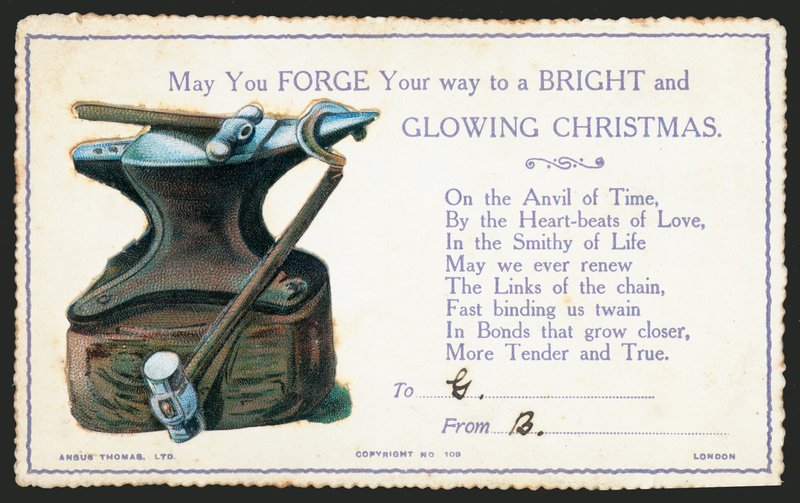 May You FORGE Your way to a BRIGHT and
GLOWING CHRISTMAS.
On the Anvil of Time,
By the Heart-beats of Love,
In the Smithy of Life
May we ever renew
The Links of the chain,
Fast binding us twain
In Bonds that grow closer,
More Tender and True.
To G.
From B.
ANGUS THOMAS, LTD. COPYRIGHT NO 109 LONDON